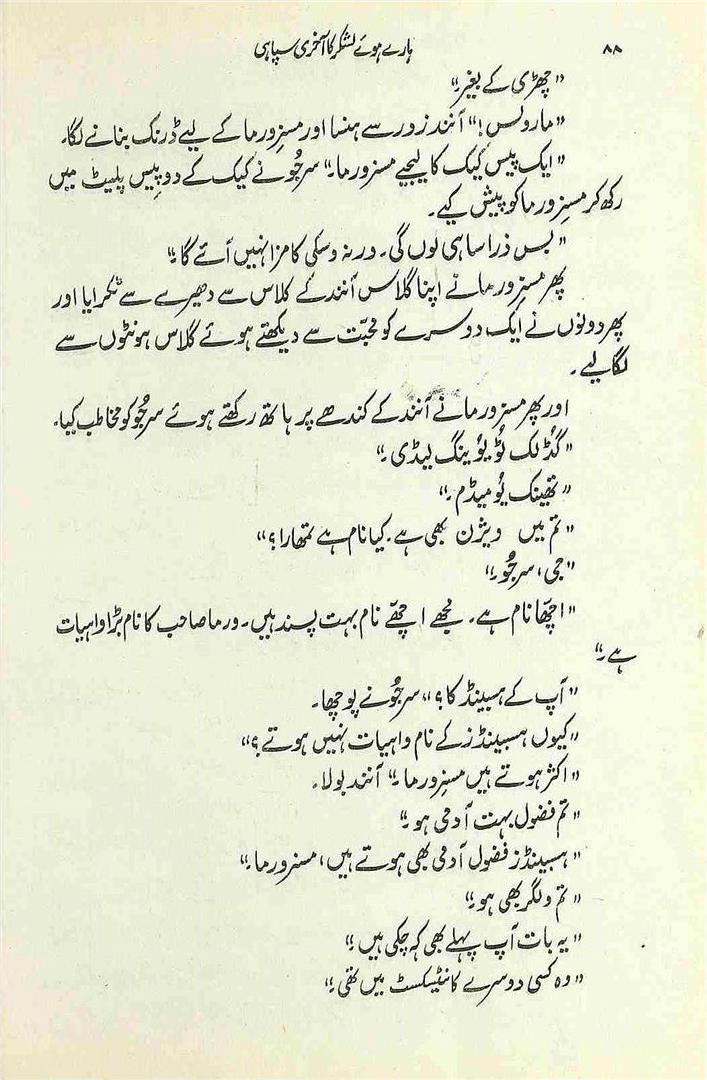 ۸۸ ہارے ہوئے لشکر کا آخری سپاہی
"چھڑی کے بغیر۔"
"مارولس!" آنند زور سے ہنسا اور مسز ورما کے لیے ڈرنک بنانے لگا۔
"ایک پیس کیک کا لیجیے مسز ورما۔" سرجُو نے کیک کے دو پیس پلیٹ میں
رکھ کر مسز ورما کو پیش کیے۔
"بس ذرا سا ہی لوں گی۔ ورنہ وسکی کا مزا نہیں آئے گا۔"
پھر مسز ورما نے اپنا گلاس آنند کے گلاس سے دھیرے سے ٹکرایا اور
پھر دونوں نے ایک دوسرے کو محبّت سے دیکھتے ہوئے گلاس ہونٹوں سے
لگا لیے۔
اور پھر مسز ورما نے آنند کے کندھے پر ہاتھ رکھتے ہوئے سرجُو کو مخاطب کیا۔
"گُڈ لک ٹُو یُو ینگ لیڈی۔"
"تھینک یُو میڈم۔"
"تم میں ویژن بھی ہے۔ کیا نام ہے تمھارا؟"
"جی، سرجُو۔"
"اچّھا نام ہے۔ مجھے اچّھے نام بہت پسند ہیں۔ ورما صاحب کا نام بڑا واہیات
ہے۔"
"آپ کے ہسبینڈ کا؟" سرجُو نے پوچھا۔
"کیوں ہسبینڈز کے نام واہیات نہیں ہوتے؟"
"اکثر ہوتے ہیں مسز ورما۔" آنند بولا۔
"تم فضول بہت آدمی ہو۔"
"ہسبینڈز فضول آدمی بھی ہوتے ہیں، مسز ورما۔"
"تم ولگر بھی ہو۔"
"یہ بات آپ پہلے بھی کہہ چکی ہیں۔"
"وہ کسی دوسرے کانٹیکسٹ میں تھی۔"